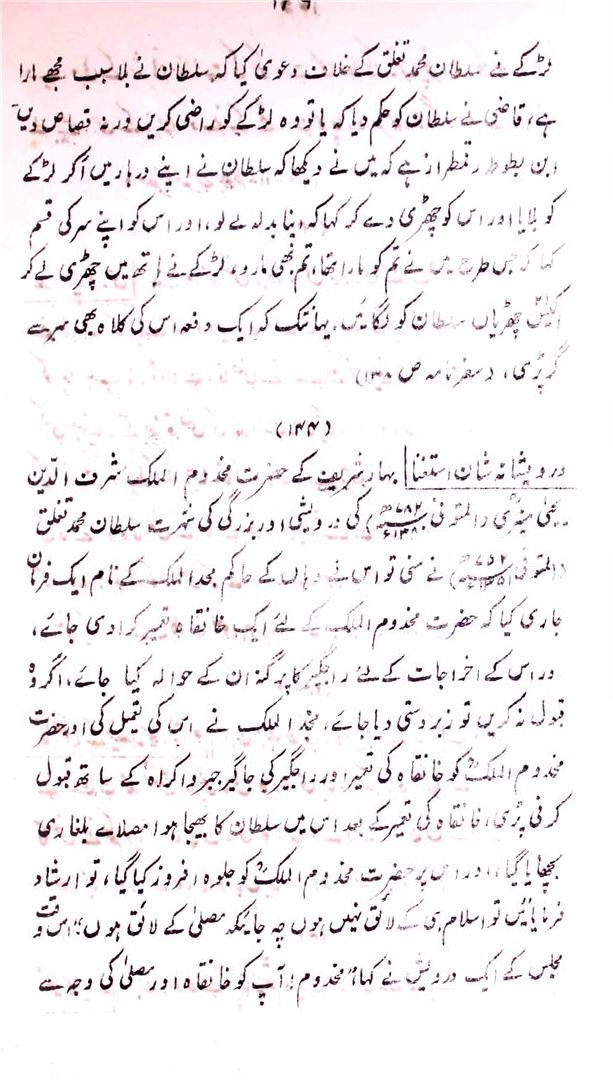 لڑکے نے سلطان محمد تغلق کے خلاف دعویٰ کیا کہ سلطان نے بلا سبب مجھے مارا
ہے، قاضی نے سلطان کو حکم دیا کہ یا تو وہ لڑکے کو راضی کریں ورنہ قصاص دیں
ابن بطوطہ رقمطراز ہے کہ میں نے دیکھا کہ سلطان نے اپنے دربار میں آکر لڑکے
کو بلایا اور اس کو چھڑی دے کر کہا کہ اپنا بدلہ لے لو، اور اس کو اپنے سر کی قسم
کہا کہ جس طرح میں نے تم کو مارا تھا، تم بھی مارو، لڑکے نے ہاتھ میں چھڑی لے کر
اکیس چھڑیاں سلطان کو لگائیں، یہانتک کہ ایک دفعہ اس کی کلاہ بھی سر سے
گر پڑی، (سفرنامہ ص ۱۳۸)
(۱۴۴)
درویشانہ شان استغنا بہار شریف کے حضرت مخدوم الملک شرف الدین
یحییٰ منیریؒ (المتوفی ۷۸۲ھ ۱۳۸۰ء) کی درویشی اور بزرگی کی شہرت سلطان محمد تغلق
(المتوفی ۷۵۲ھ ۱۳۵۱ء) نے سنی تو اس نے وہاں کے حاکم مجد الملک کے نام ایک فرمان
جاری کیا کہ حضرت مخدوم الملک کے لئے ایک خانقاہ تعمیر کرا دی جائے،
اور اس کے اخراجات کے لئے راجگیر کا پرگنہ ان کے حوالہ کیا جائے، اگر وہ
قبول نہ کریں تو زبردستی دیا جائے، مجد الملک نے اس کی تعمیل کی اور حضرت
مخدوم الملکؒ کو خانقاہ کی تعمیر اور راجگیر کی جاگیر جبر و اکراہ کے ساتھ قبول
کرنی پڑی، خانقاہ کی تعمیر کے بعد اس میں سلطان کا بھیجا ہوا مصلائے بلغاری
بچھایا گیا، اور اس پر حضرت مخدوم الملکؒ کو جلوہ افروز کیا گیا، تو ارشاد
فرمایا "میں تو اسلام ہی کے لائق نہیں ہوں چہ جائیکہ مصلیٰ کے لائق ہوں" اس وقت
مجلس کے ایک درویش نے کہا "مخدوم! آپ کو خانقاہ اور مصلیٰ کی وجہ سے